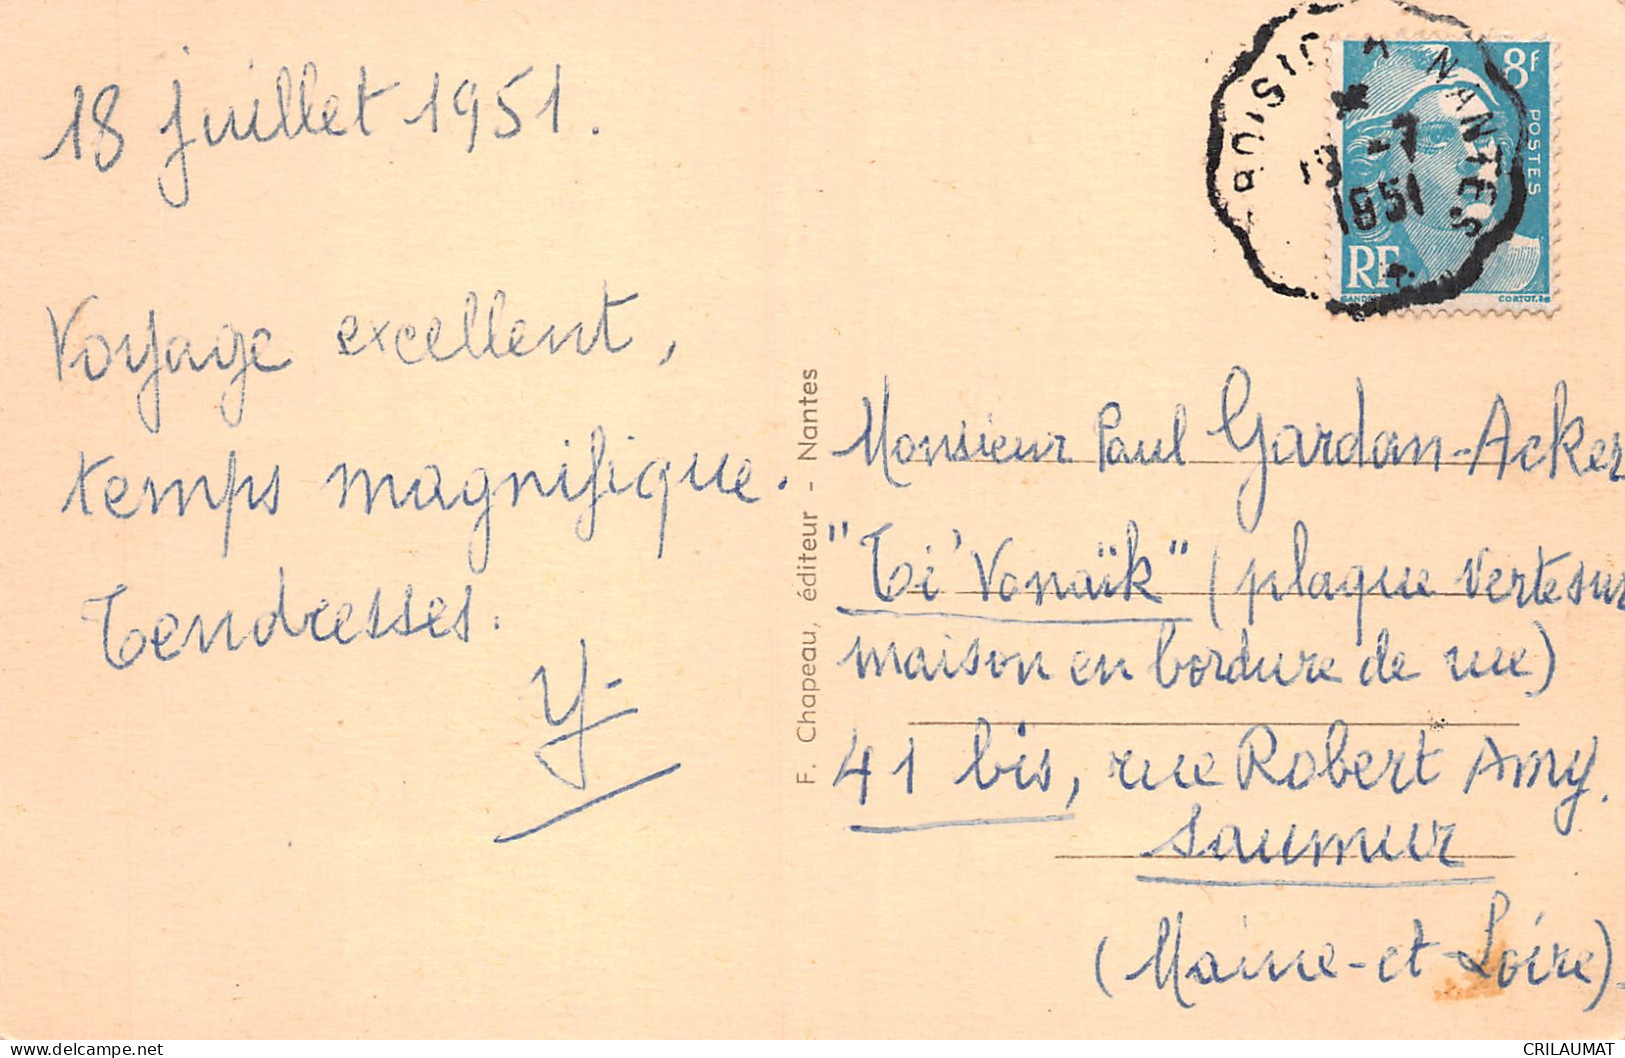 18 juillet 1951.
Voyage excellent,
temps magnifique.
Tendresses.
Y.
F. Chapeau, éditeur - Nantes
NANTES
-7
1951
8F
POSTES
RF
CORTOT. Sc
Monsieur Paul Gardan-Acker
"Ti' Vonaïk" (plaque verte sur
maison en bordure de rue)
41 bis, rue Robert Amy.
Saumur
(Maine-et-Loire).
CRILAUMAT